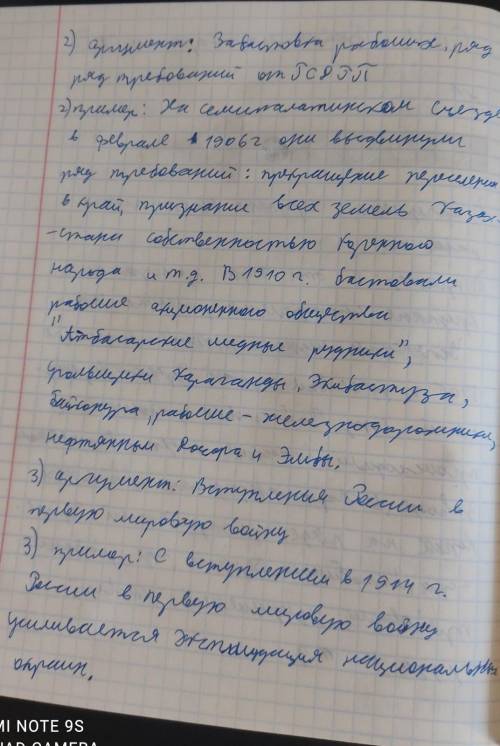 2) аргумент: Забастовка рабочих, ряд
ряд требований от
2) пример: На семипалатинском съезде
в феврале 1906г они выдвинули
ряд требований: прекращение переселения
в край, признание всех земель Казах-
-стана собственностью коренного
народа и т.д. В 1910 г. бастовали
рабочие акционерного общества
"Атбасарские медные рудники",
угольщики Караганды, Экибастуза,
Байконура, рабочие - железнодорожники,
нефтянники Доссора и Эмбы.
3) аргумент: Вступления России в
первую мировую войну
3) пример: С вступлением в 1914 г.
России в первую мировую войну
усиливается эксплуатация национальных
окраин.
MI NOTE 9S